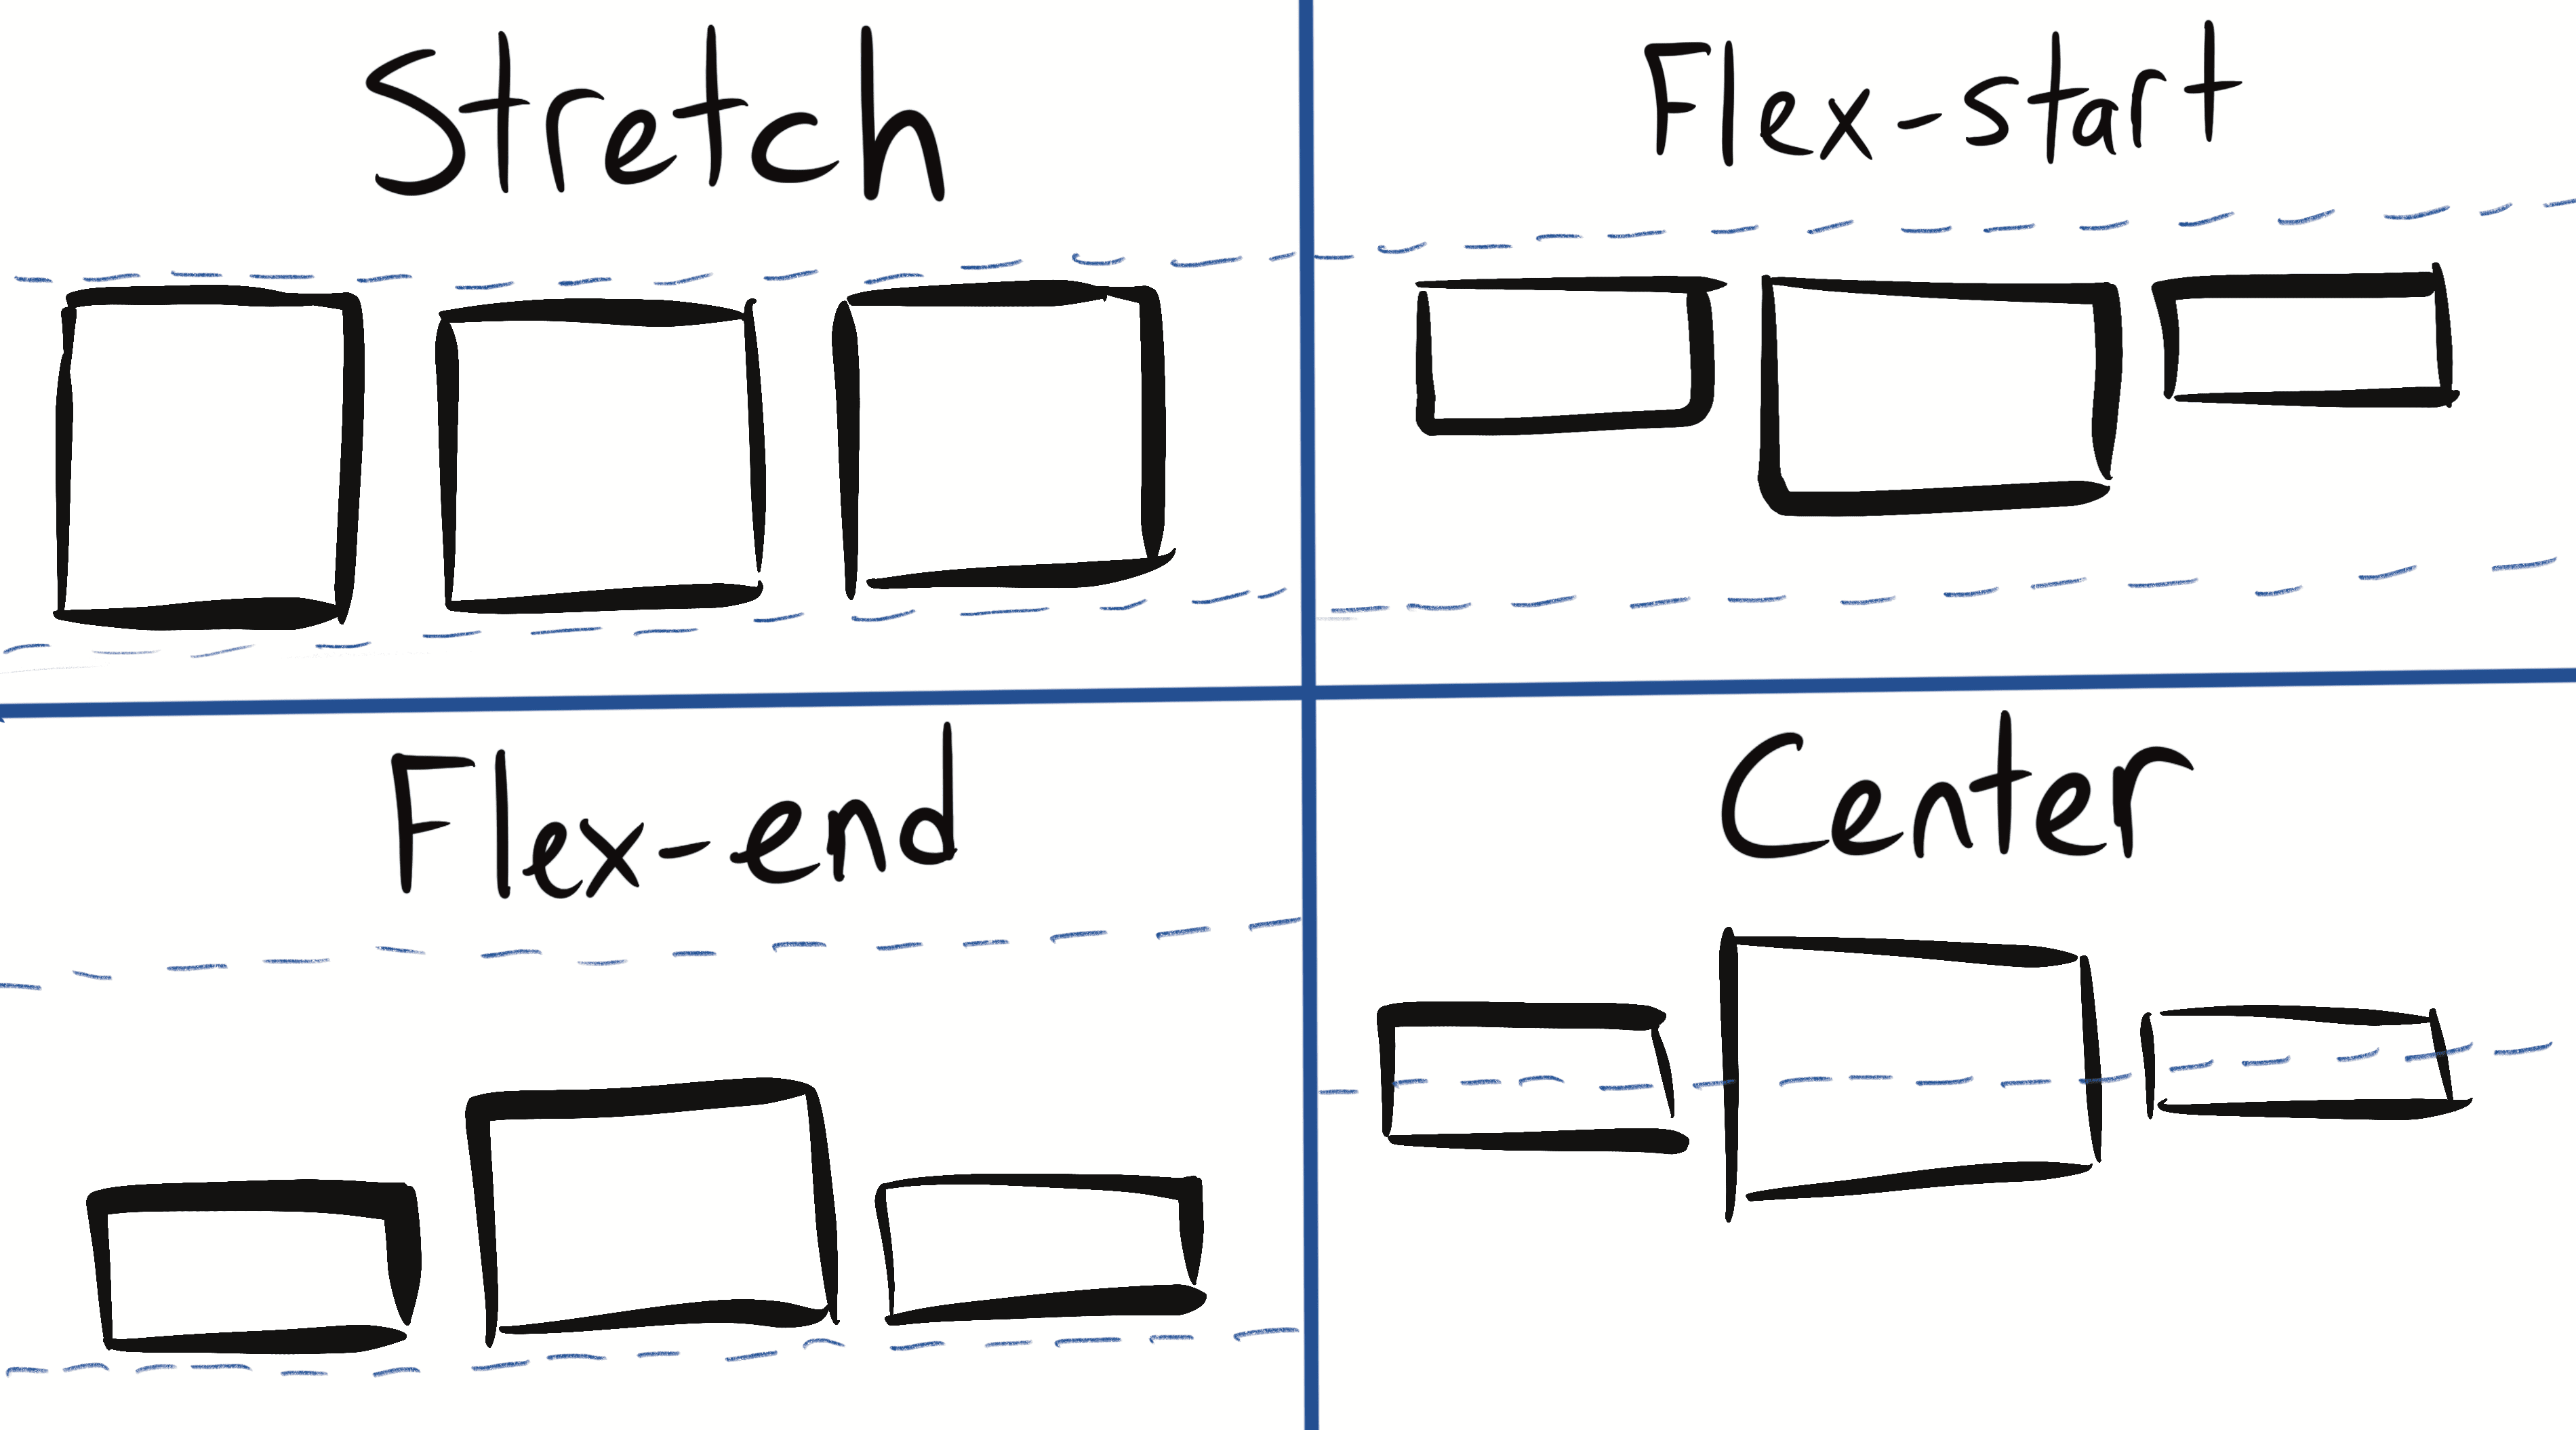 Stretch
Flex-start
Flex-end
Center